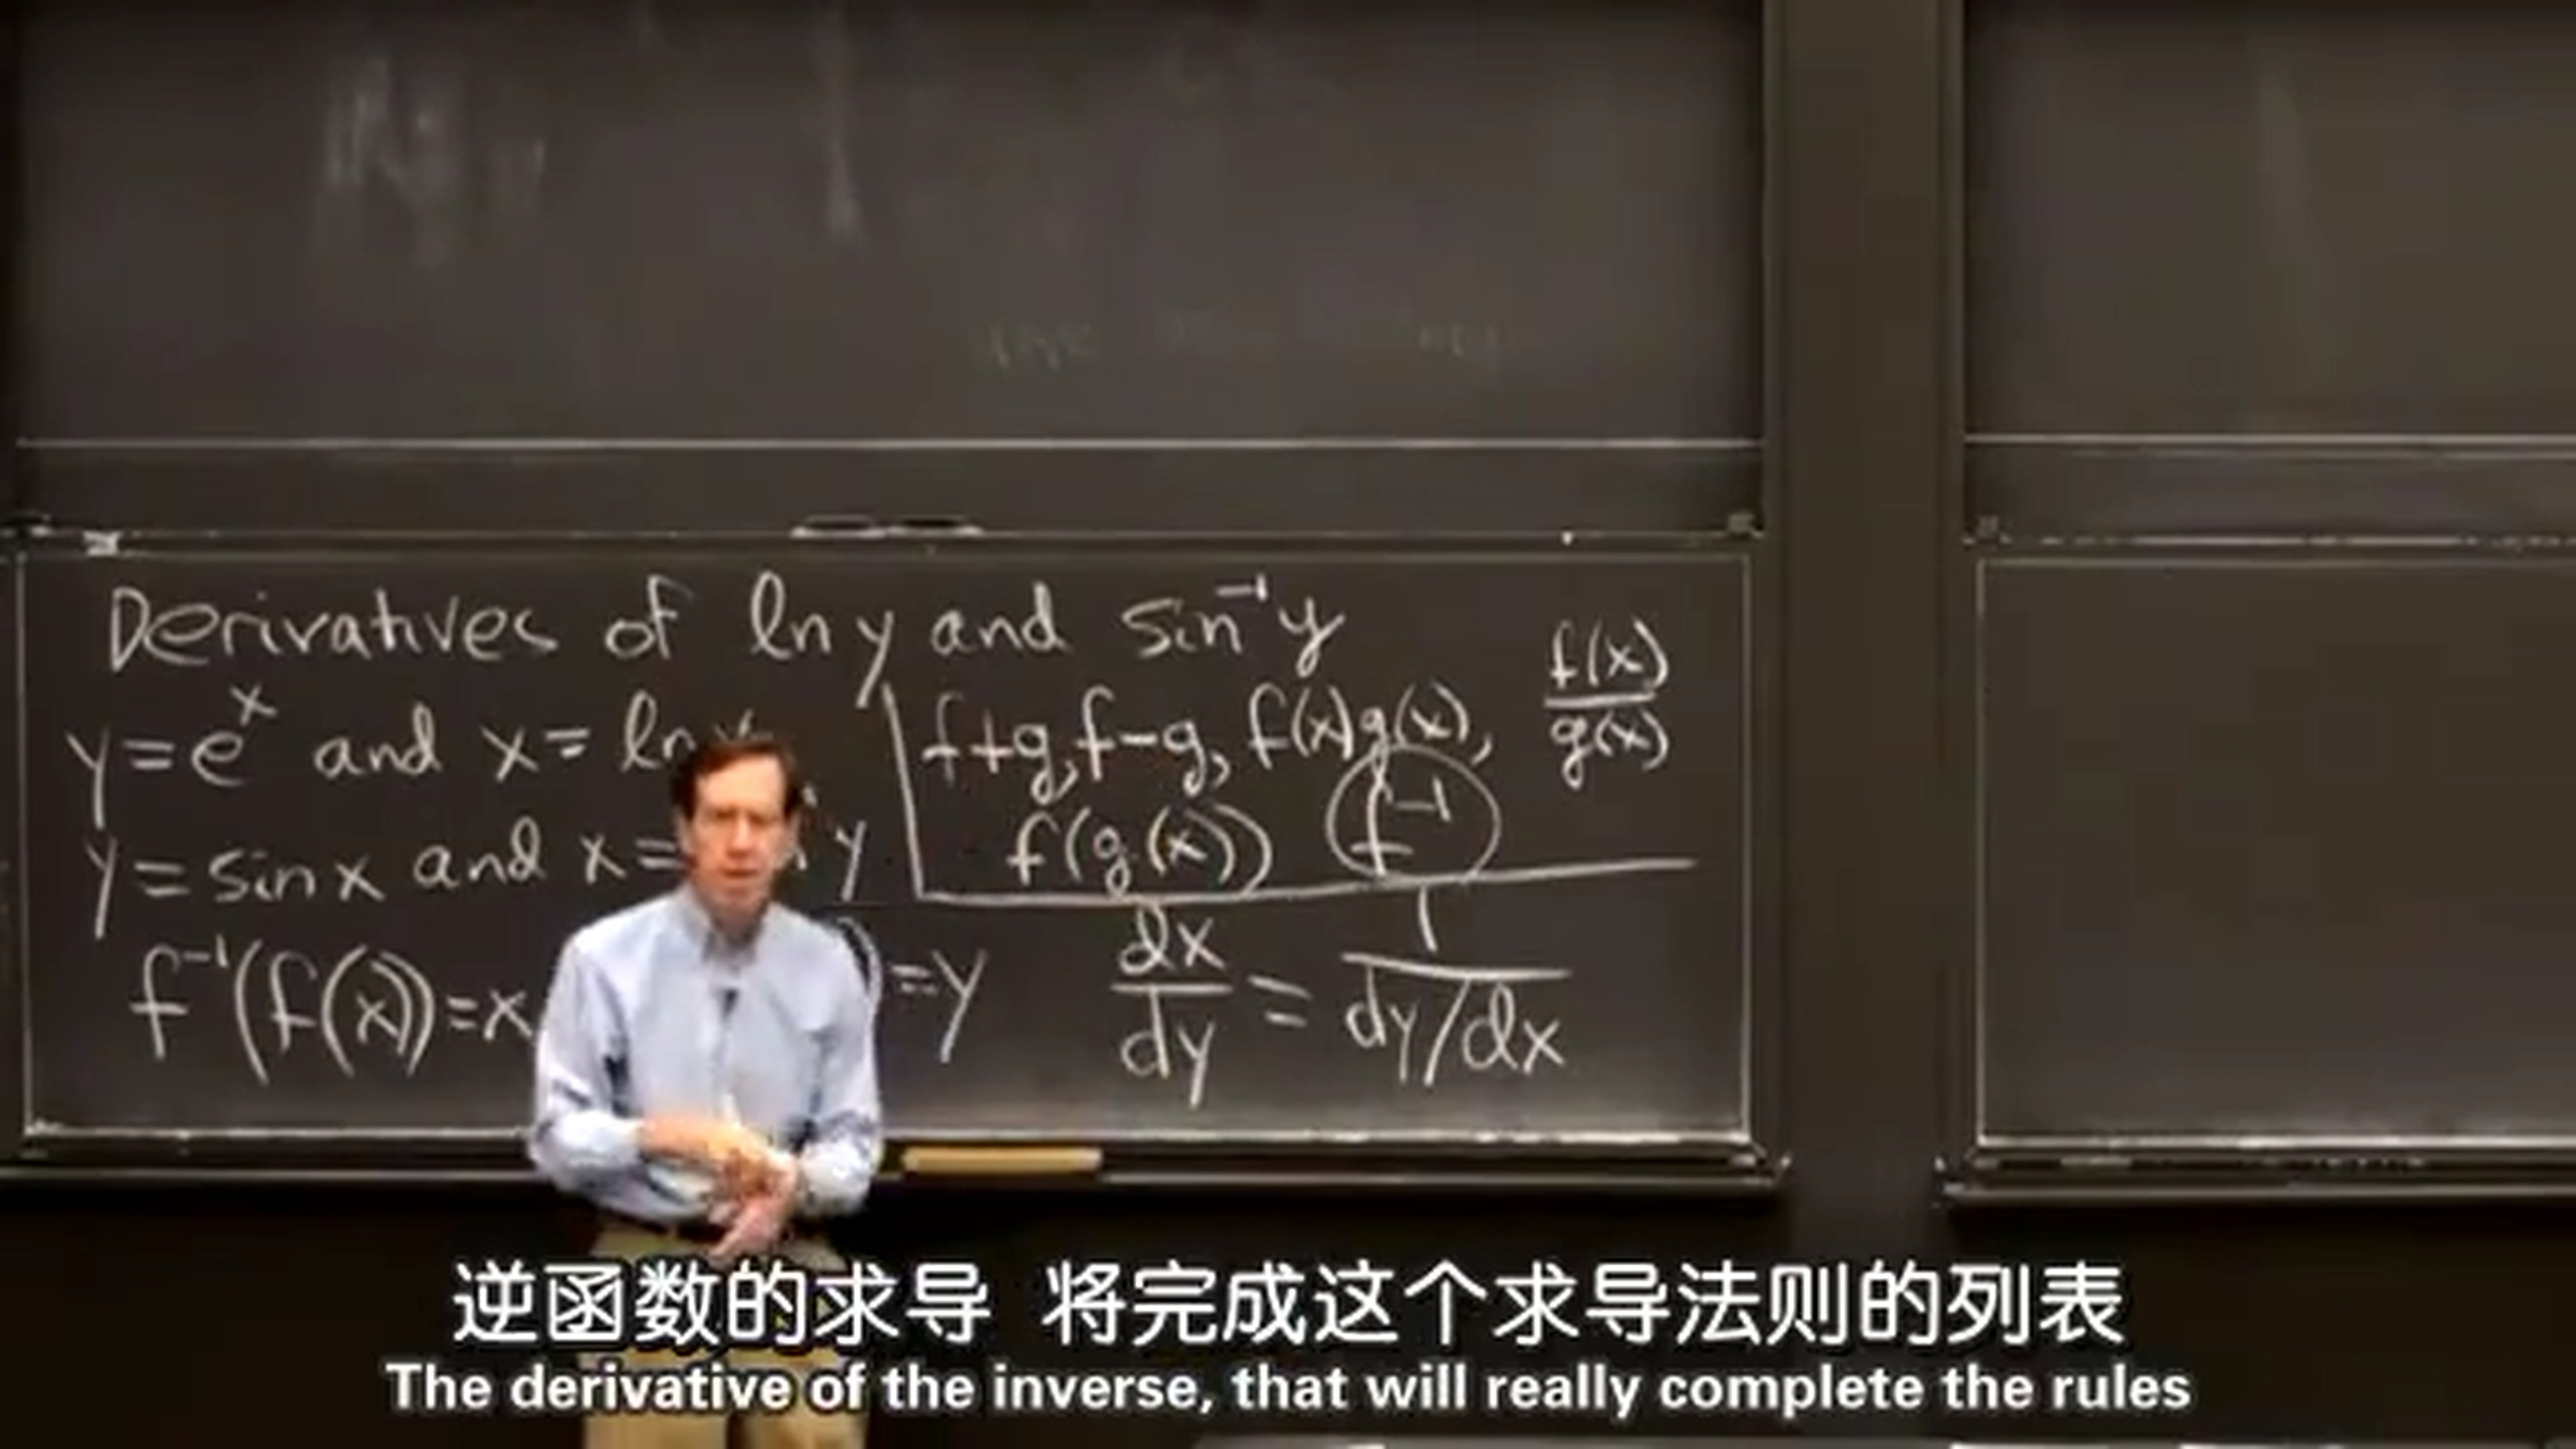 Derivatives of ln y and sin⁻¹ y
y = eˣ and x = ln y
y = sin x and x = y
f⁻¹(f(x)) = x ) = y
f+g, f-g, f(x)g(x), f(x)/g(x)
f(g(x)) f⁻¹
dx/dy = 1/(dy/dx)
逆函数的求导 将完成这个求导法则的列表
The derivative of the inverse, that will really complete the rules